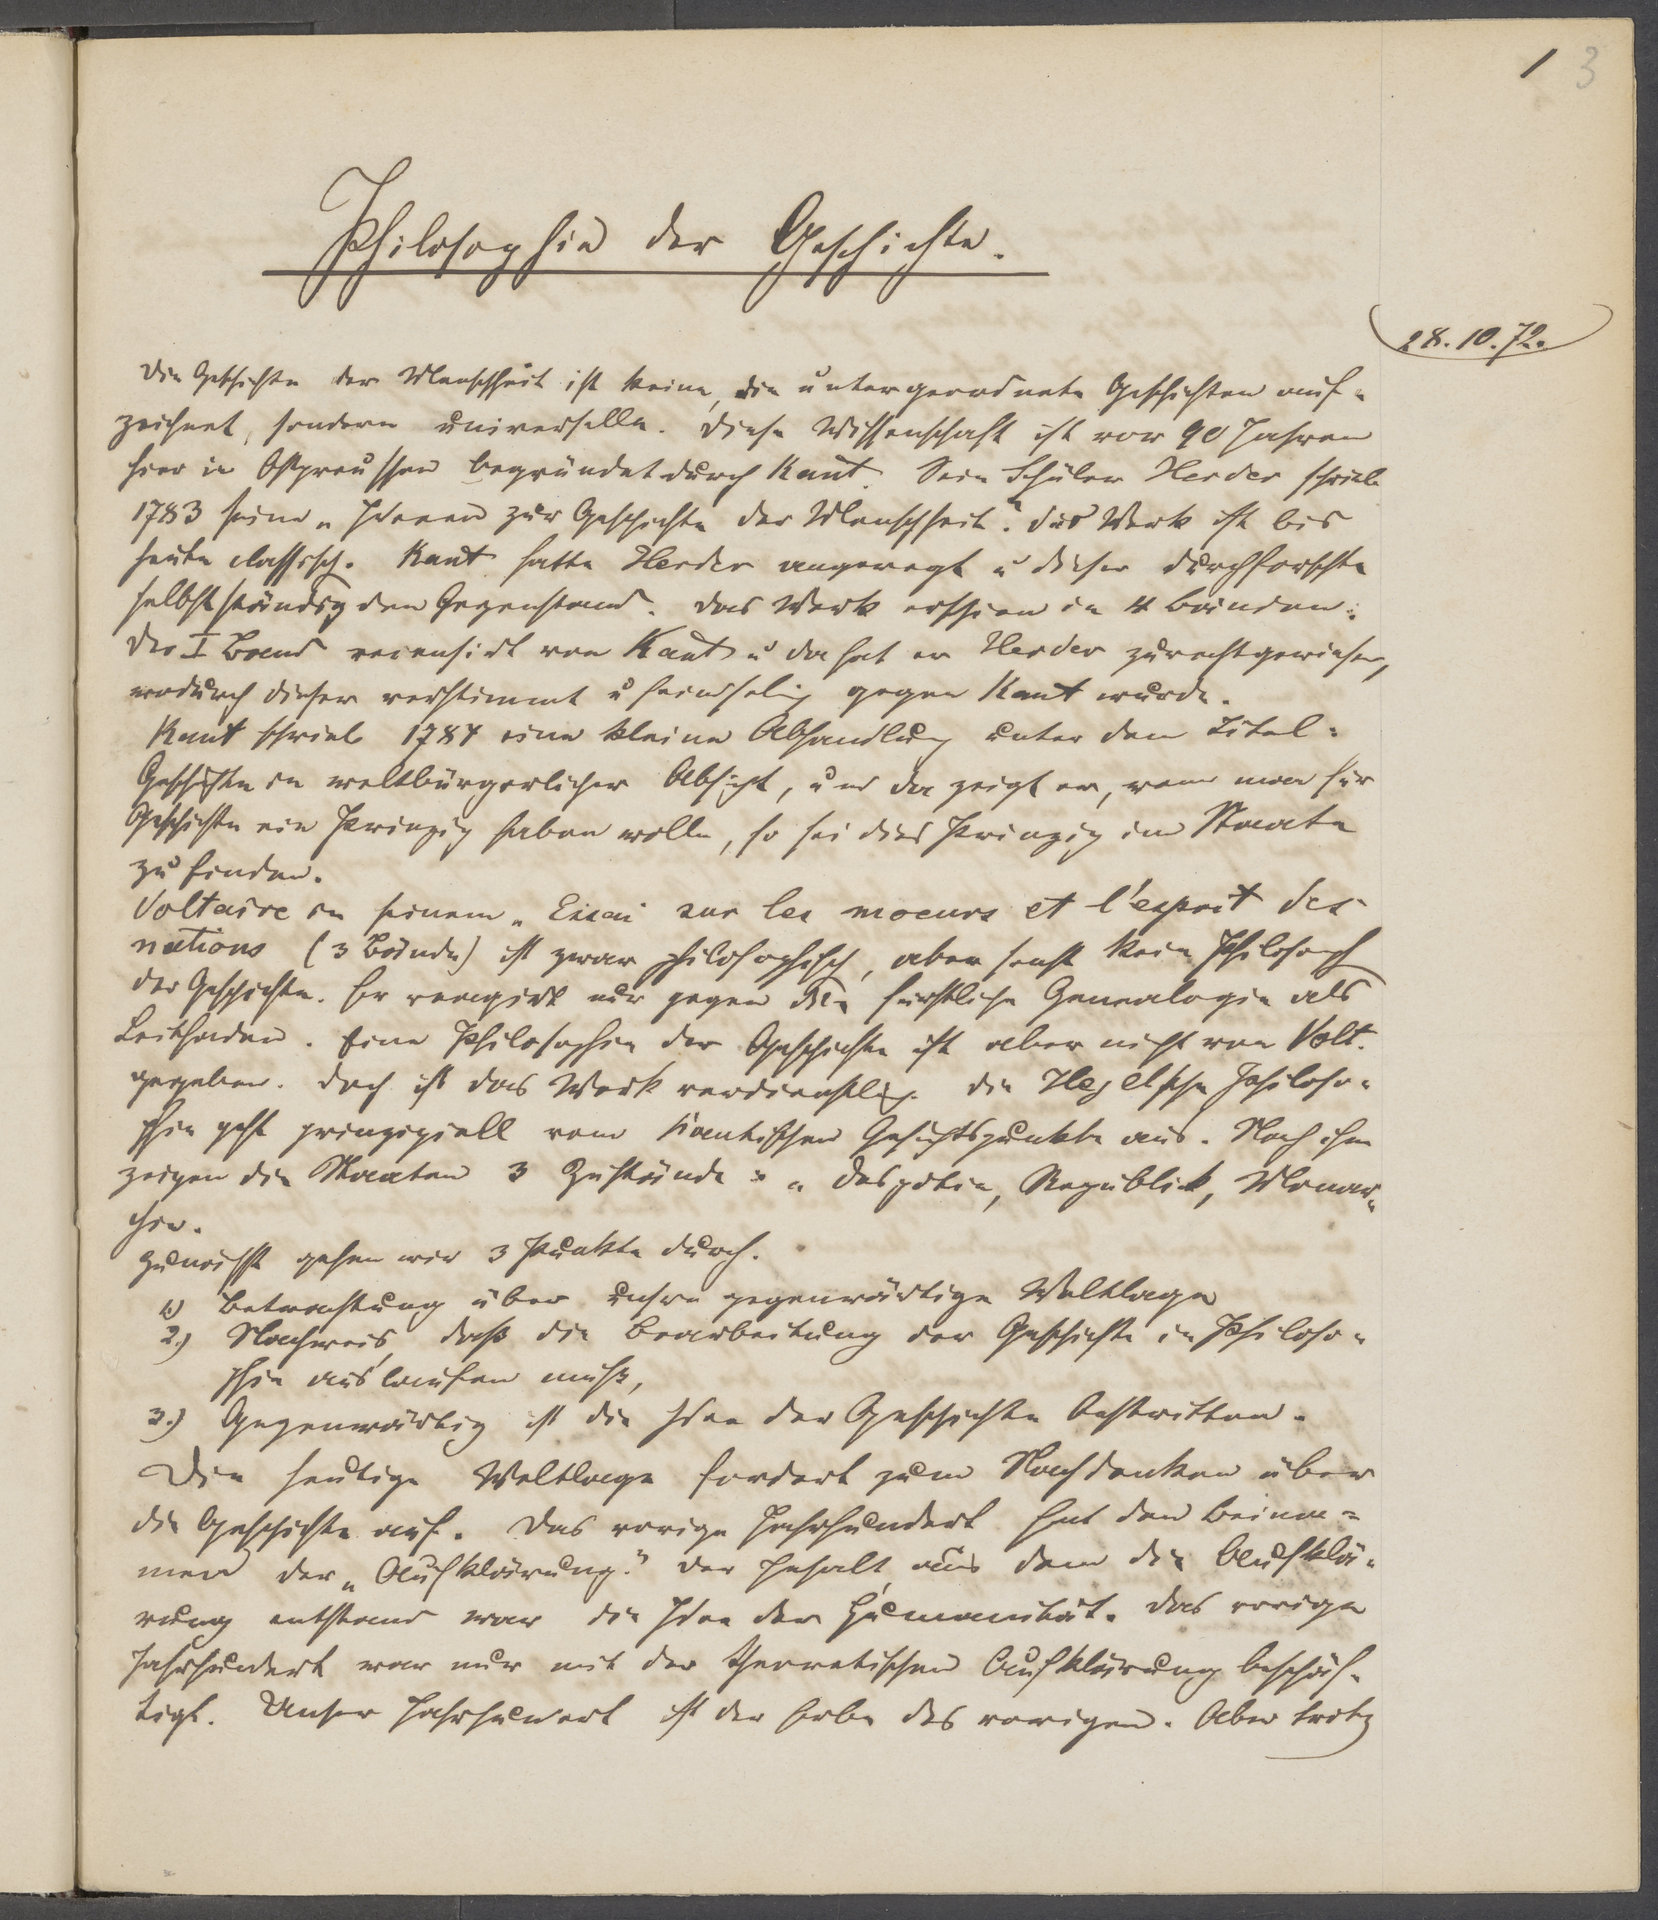 1 3
Philosophie der Geschichte.
28.10.72.
Die Geschichte der Menschheit ist keine, die untergeordnete Geschichten auf-
zeichnet, sondern universelle. Diese Wissenschaft ist vor 90 Jahren
hier in Ostpreussen begründet durch Kant. Sein Schüler Herder schrieb
1783 seine „Ideeen zur Geschichte der Menschheit“. Das Werk ist bis
heute classisch. Kant hatte Herder angeregt u dieser durchforschte
selbstständig den Gegenstand. Das Werk erschien in 4 Bänden:
der I Band recensirt von Kant u da hat er Herder zurechtgewiesen,
wodurch dieser verstimmt u feindselig gegen Kant wurde.
Kant schrieb 1784 eine kleine Abhandlung unter dem Titel:
Geschichte in weltbürgerlicher Absicht, und da zeigt er, wenn man für
Geschichte ein Prinzip haben wolle, so sei dies Prinzip im Staate
zu finden.
Voltaire in seinem „Essai sur les moeurs et l'esprit des
nations (3 Bände) ist zwar philosophisch, aber sonst kein Philosoph
der Geschichte. Er reagirt nur gegen die fürstliche Genealogie als
Leitfaden. Eine Philosophie der Geschichte ist aber nicht von Volt.
gegeben. Doch ist das Werk verdienstlich. Die Hegelsche Philoso-
phie geht prinzipiell vom Kantischen Gesichtspunkte aus. Nach ihm
zeigen die Staaten 3 Zustände: „Despotie, Republick, Monar-
chie.
Zunächst gehen wir 3 Punkte durch.
1.) Betrachtung über unsre gegenwärtige Weltlage
2.) Nachweis, daß die Bearbeitung der Geschichte in Philoso-
phie auslaufen muß,
3.) Gegenwärtig ist die Idee der Geschichte bestritten.
Die heutige Weltlage fordert zum Nachdenken über
die Geschichte auf. Das vorige Jahrhundert hat den Beina-
men der „Aufklärung“. Der Inhalt aus dem die Aufklä-
rung entstand war die Idee der Humanität. Das vorige
Jahrhundert war nur mit der theoretischen Aufklärung beschäf-
tigt. Unser Jahrhundert ist der Erbe des vorigen. Aber trotz